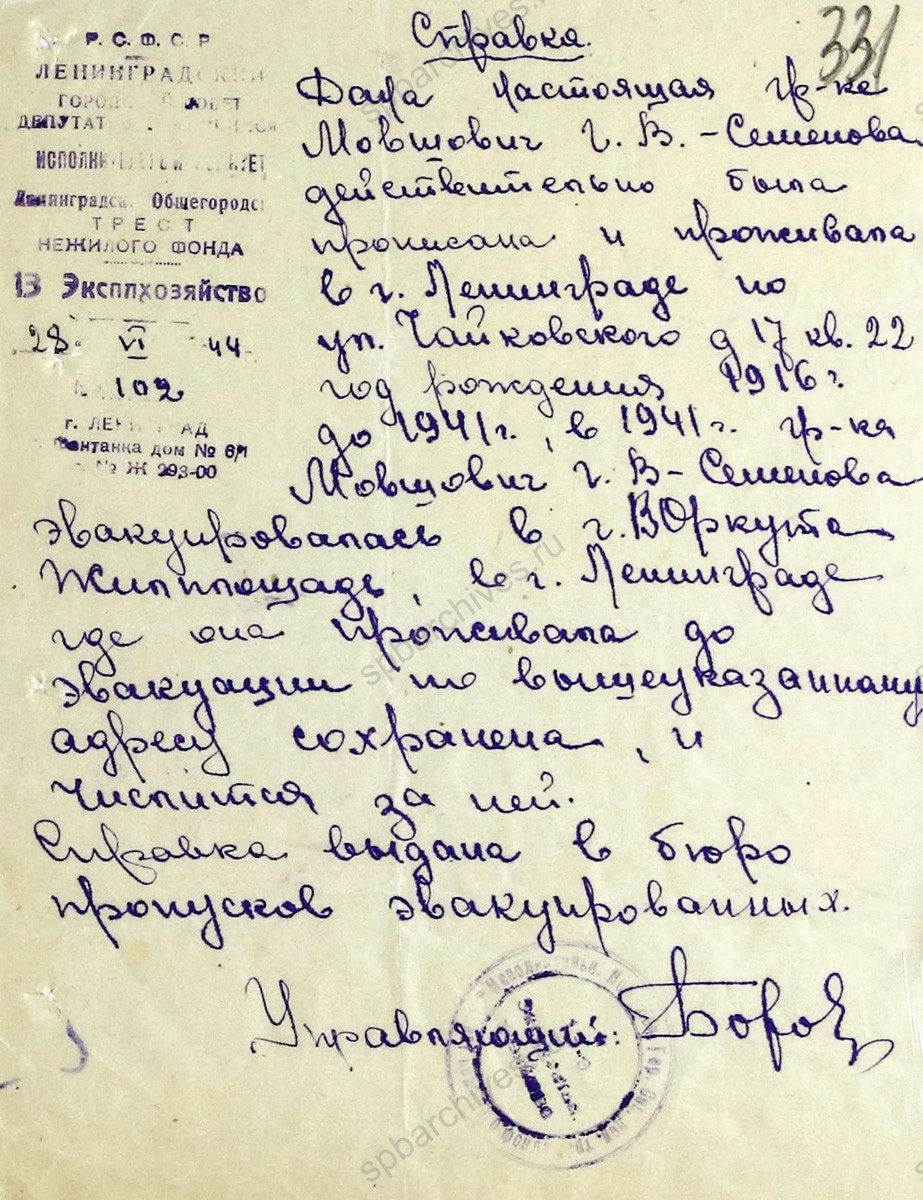 331
Р.С.Ф.С.Р
ЛЕНИНГРАДСКИЙ
ДЕПУТАТ
Ленинградск. Общегородс
ТРЕСТ
НЕЖИЛОГО ФОНДА
13 Эксплхозяйство
28 VI 44
№ 102
г. ЛЕНИНГРАД
Фонтанка дом №
№ Ж 293-00
Справка.
Дана настоящая гр-ке
Мовшович Г. В. - Семенова
действительно была
прописана и проживала
в г. Ленинграде по
ул. Чайковского д 17 кв. 22
год рождения 1916 г.
до 1941 г., в 1941 г. гр-ка
Мовшович Г. В - Семенова
эвакуировалась в г. ВОркута
Жилплощадь, в г. Ленинграде
где она проживала до
эвакуации по вышеуказанному
адресу сохранена, и
числится за ней.
Справка выдана в бюро
пропусков эвакуированных.
Управляющий:
spbarchives.ru